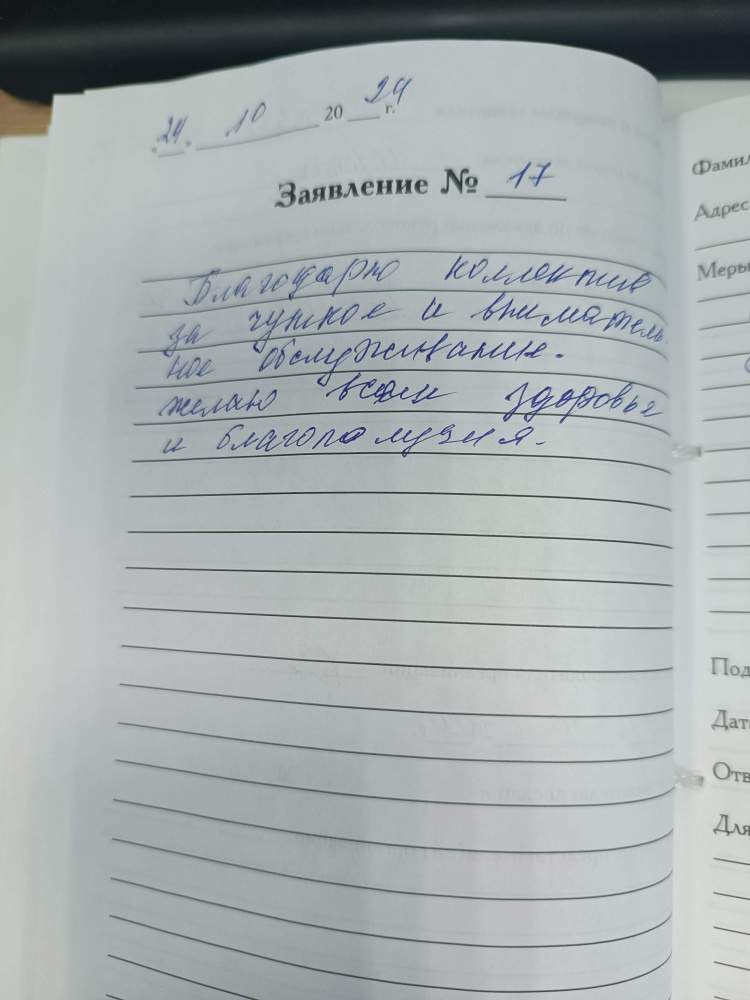 "24" 10 2024 г.
Заявление № 17
Благодарю коллектив
за чуткое и вниматель
ное обслуживание.
желаю всем здоровья
и благополучия.
Фамил
Адрес
Меры
Под
Дата
Отв
Для